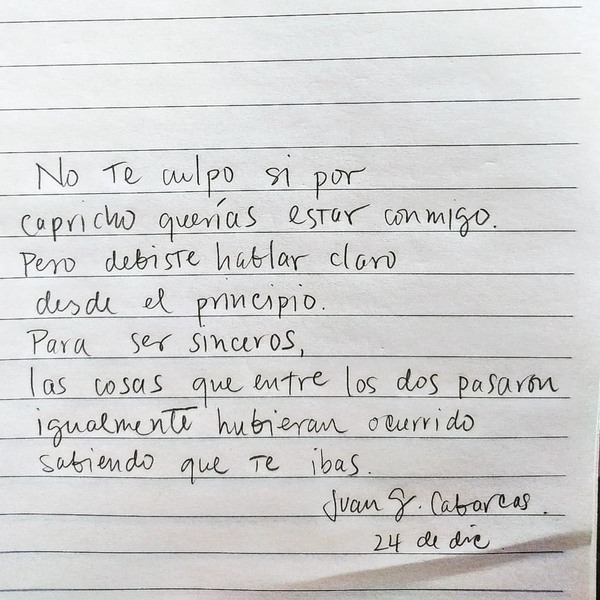 No Te culpo si por
capricho querías estar conmigo.
Pero debiste hablar claro
desde el principio.
Para ser sinceros,
las cosas que entre los dos pasaron
igualmente hubieran ocurrido
sabiendo que Te ibas.
Juan G. Cabarcas.
24 de dic